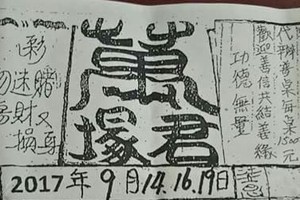 代辦善桌每桌1500元
歡迎善信共結善緣
功德無量
萬
君塚
彩
勿迷賭
財又
損身
2017年9月14.16.19日